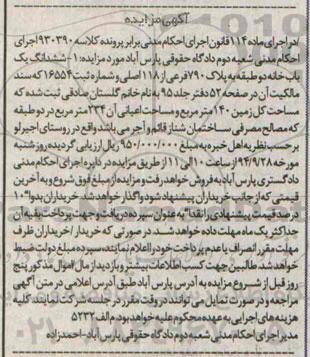 آگهی مزایده
در اجرای ماده ۱۱۴ قانون اجرای احکام مدنی برابر پرونده کلاسه ۹۳۰۳۹۰ اجرای
احکام مدنی شعبه دوم دادگاه حقوقی پارس آباد مورد مزایده: ۱- ششدانگ یک
باب خانه دو طبقه به پلاک ۷۹۰ فرعی از ۱۱۸ اصلی و شماره ثبت ۱۶۵۵۴ که سند
مالکیت آن در صفحه ۵۲ دفتر جلد ۹۵ به نام خانم گلستان صادقی ثبت شده که
مساحت کل زمین ۱۴۰ متر مربع و مساحت اعیانی آن ۲۳۴ متر مربع در دو طبقه
که مصالح مصرفی ساختمان شناژ قائم و آجر می باشد واقع در روستای اجیرلو
بر حسب نظریه اهل خبره به مبلغ ۹۵۰/۰۰۰/۰۰۰ ریال ارزیابی گردیده روز شنبه
مورخه ۹۴/۹/۲۸ از ساعت ۱۰ الی ۱۱ از طریق مزایده در دایره اجرای احکام مدنی
دادگستری پارس آباد به فروش خواهد رفت و مزایده از مبلغ فوق شروع و به آخرین
قیمتی که از جانب خریداران پیشنهاد شود واگذار خواهد شد. خریداران بدوا ۱۰
درصد قیمت پیشنهادی را نقدا به عنوان سپرده دریافت و جهت پرداخت بقیه آن
حداکثر یک ماه مهلت داده خواهد شد. در صورتی که خریدار / خریداران ظرف
مهلت مقرر انصراف یا عدم پرداخت خود را اعلام نمایند، سپرده مبلغ دولت ضبط
خواهد شد. طالبین جهت کسب اطلاعات بیشتر و بازدید از مال اموال مذکور پنج
روز قبل از شروع مزایده به آدرس پارس آباد طبق آدرس اعلامی در متن آگهی
مراجعه و در صورت تمایل می توانند در وقت مقرر در جلسه شرکت نمایند. کلیه
هزینه های اجرایی به عهده محکوم علیه خواهد بود. م الف ۵۲۳۲
مدیر اجرای احکام مدنی شعبه دوم دادگاه حقوقی پارس آباد- احمدزاده